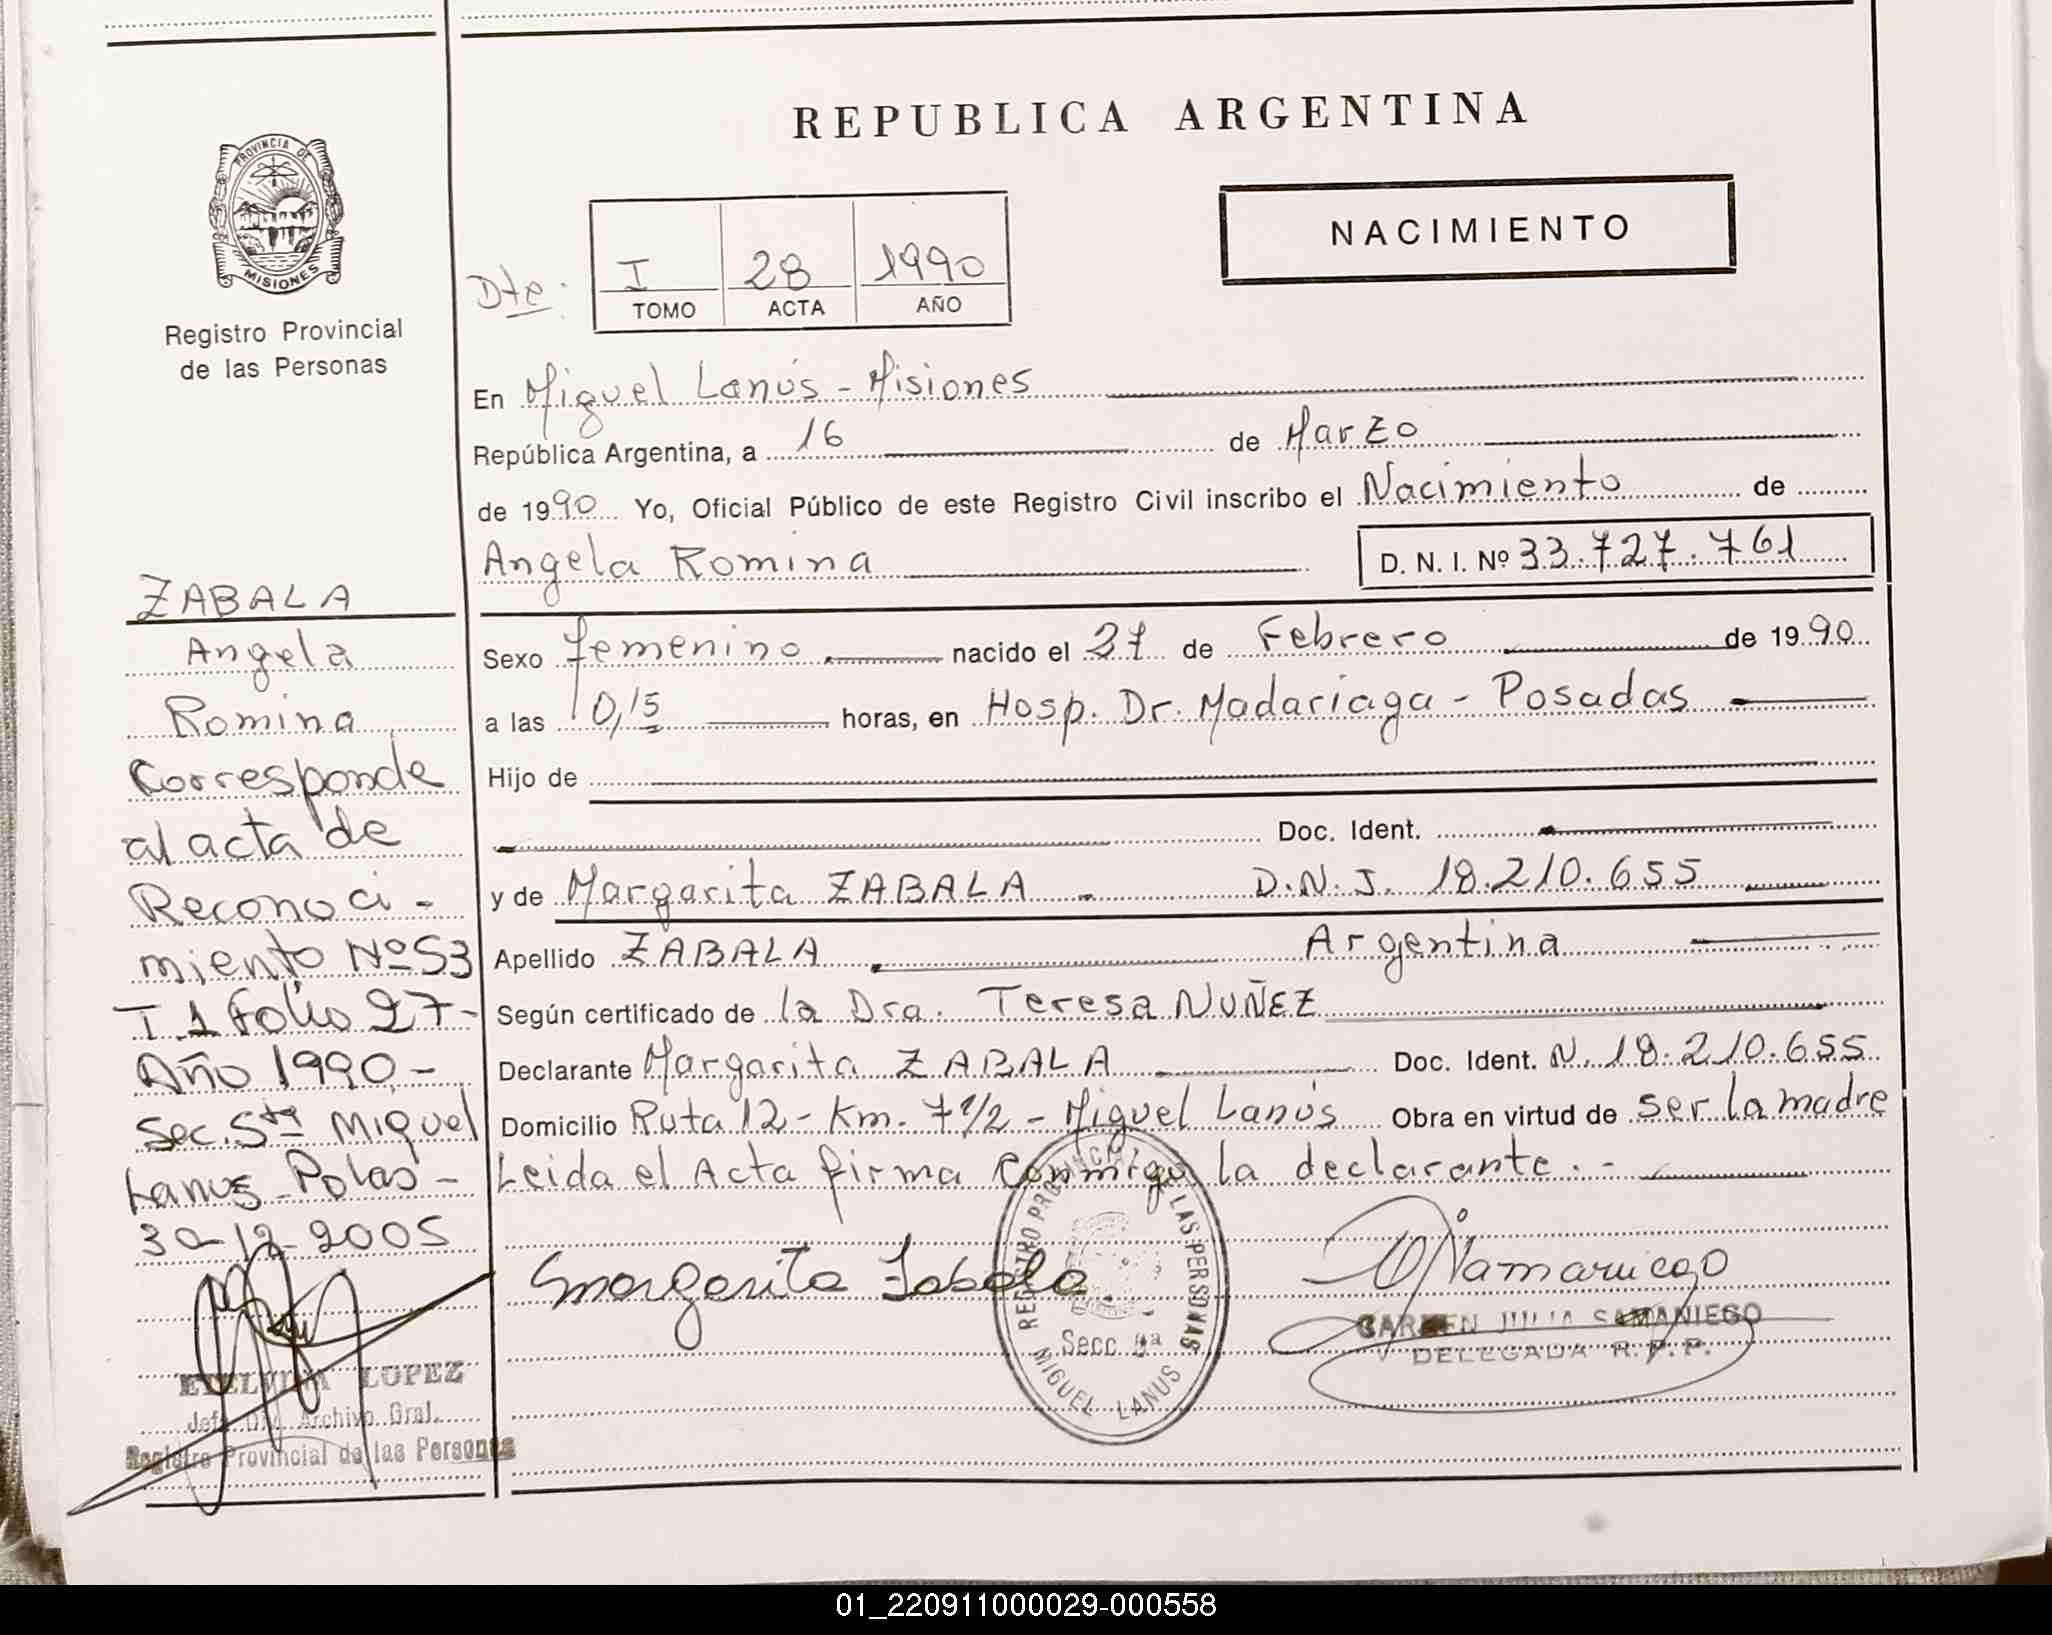 REPUBLICA ARGENTINA
PROVINCIA DE
MISIONES
Registro Provincial
de las Personas
NACIMIENTO
Dte:
I 28 1990
TOMO ACTA AÑO
En Miguel Lanús - Misiones
República Argentina, a 16 de Marzo
de 1990 Yo, Oficial Público de este Registro Civil inscribo el Nacimiento de
Angela Romina D. N. I. Nº 33.727.761
Sexo femenino nacido el 27 de Febrero de 1990
a las 0,15 horas, en Hosp. Dr. Madariaga - Posadas
Hijo de
Doc. Ident.
y de Margarita ZABALA D.N.I. 18.210.655
Apellido ZABALA Argentina
Según certificado de la Dra. Teresa NUÑEZ
Declarante Margarita ZABALA Doc. Ident. N. 18.210.655
Domicilio Ruta 12 - Km. 7 1/2 - Miguel Lanús Obra en virtud de ser la madre
Leida el Acta firma conmigo la declarante. -
Margarita Zabala
REGISTRO PROVINCIAL DE LAS PERSONAS
Secc.
MIGUEL LANUS
CARMEN JULIA SAMANIEGO
DELEGADA R.P.P.
ZABALA
Angela
Romina
Corresponde
al acta de
Reconoci -
miento Nº 53
T 1 folio 27 -
Año 1990 -
Sec. 5ta Miguel
Lanus
30-12-2005
LOPEZ
Jefe Archivo Gral.
Registro Provincial de las Personas
01_220911000029-000558